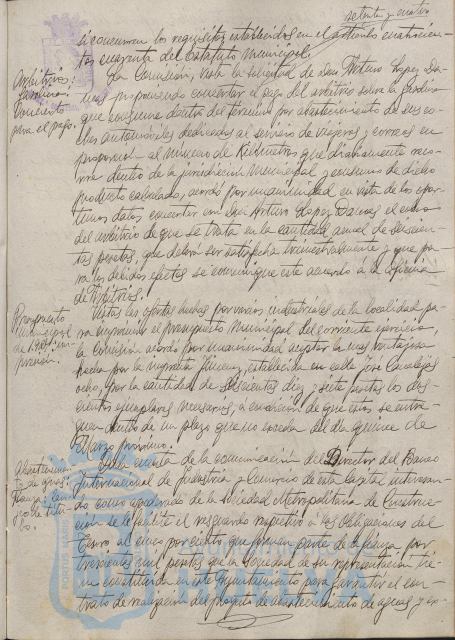 setenta y cuatro
si concurren los requisitos establecidos en el artículo cuatrocien-
tos cuarenta del Estatuto Municipal.
Arbitrio
gasolina
Concierto
para el pago.
La Comisión, vista la solicitud de Don Arturo Lopez Da-
mas proponiendo concertar el pago del arbitrio sobre la gasolina
que consume dentro del término por abastecimiento de sus co-
ches automóviles dedicados al servicio de viajeros y correos en
proporción al número de Kilómetros que diariamente reco-
rre dentro de la jurisdicción municipal y consumo de dicho
producto calculado, acordó por unanimidad en vista de los opor-
tunos datos, concertar con Don Arturo Lopez Damas el cobro
del arbitrio de que se trata en la cantidad anual de seiscien-
tas pesetas, que deberá ser satisfecha trimestralmente y que pa-
ra los debidos efectos se comunique este acuerdo á la oficina
de Arbitrios.
Presupuesto
municipal
impresión.
Vistas las ofertas hechas por varios industriales de la localidad pa-
ra imprimir el presupuesto municipal del corriente ejercicio,
la Comisión acordó por unanimidad aceptar la mas ventajosa
hecha por la imprenta Jimenez, establecida en calle José Canalejas
ocho, por la cantidad de seiscientas diez y siete pesetas los dos-
cientos ejemplares necesarios, á condición de que estos se entre-
guen dentro de un plazo que no exceda del día quince de
Marzo próximo.
Abastecimien-
to de aguas
Fianza
Dada cuenta de la comunicación del Director del Banco
Internacional de Industria y Comercio de esta Capital interesan-
do como apoderado de la Sociedad Metropolitana de Construc-
ción se le facilite el resguardo respectivo á las Obligaciones del
Tesoro al cinco por ciento que forman parte de la fianza por
trescientas mil pesetas que la Sociedad de su representación tie-
ne constituida en este Ayuntamiento para garantir el con-
trato de realización del proyecto de abastecimiento de aguas y ex-